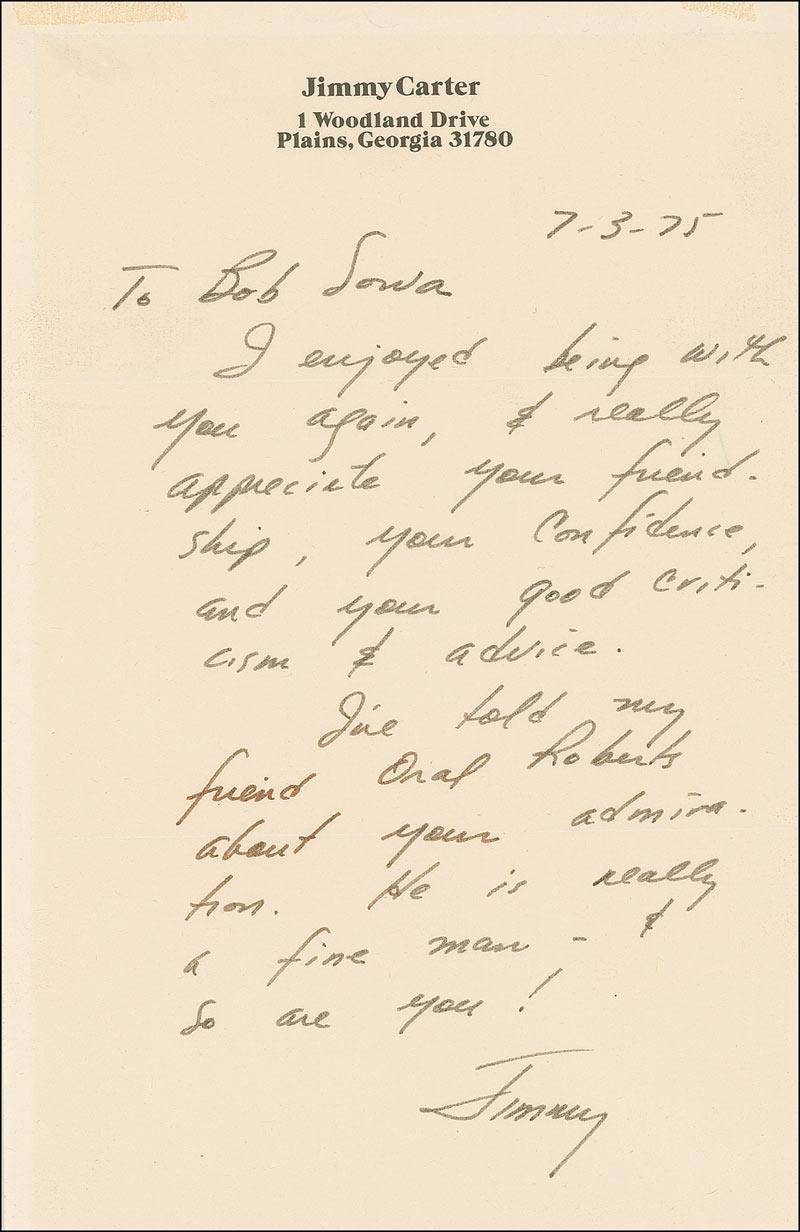 Jimmy Carter
1 Woodland Drive
Plains, Georgia 31780
7-3-75
To Bob Sowa
I enjoyed being with
you again, & really
appreciate your friend-
ship, your confidence,
and your good criti-
cism & advice.
I've told my
friend Oral Roberts
about your admira-
tion. He is really
a fine man - &
so are you!
Jimmy